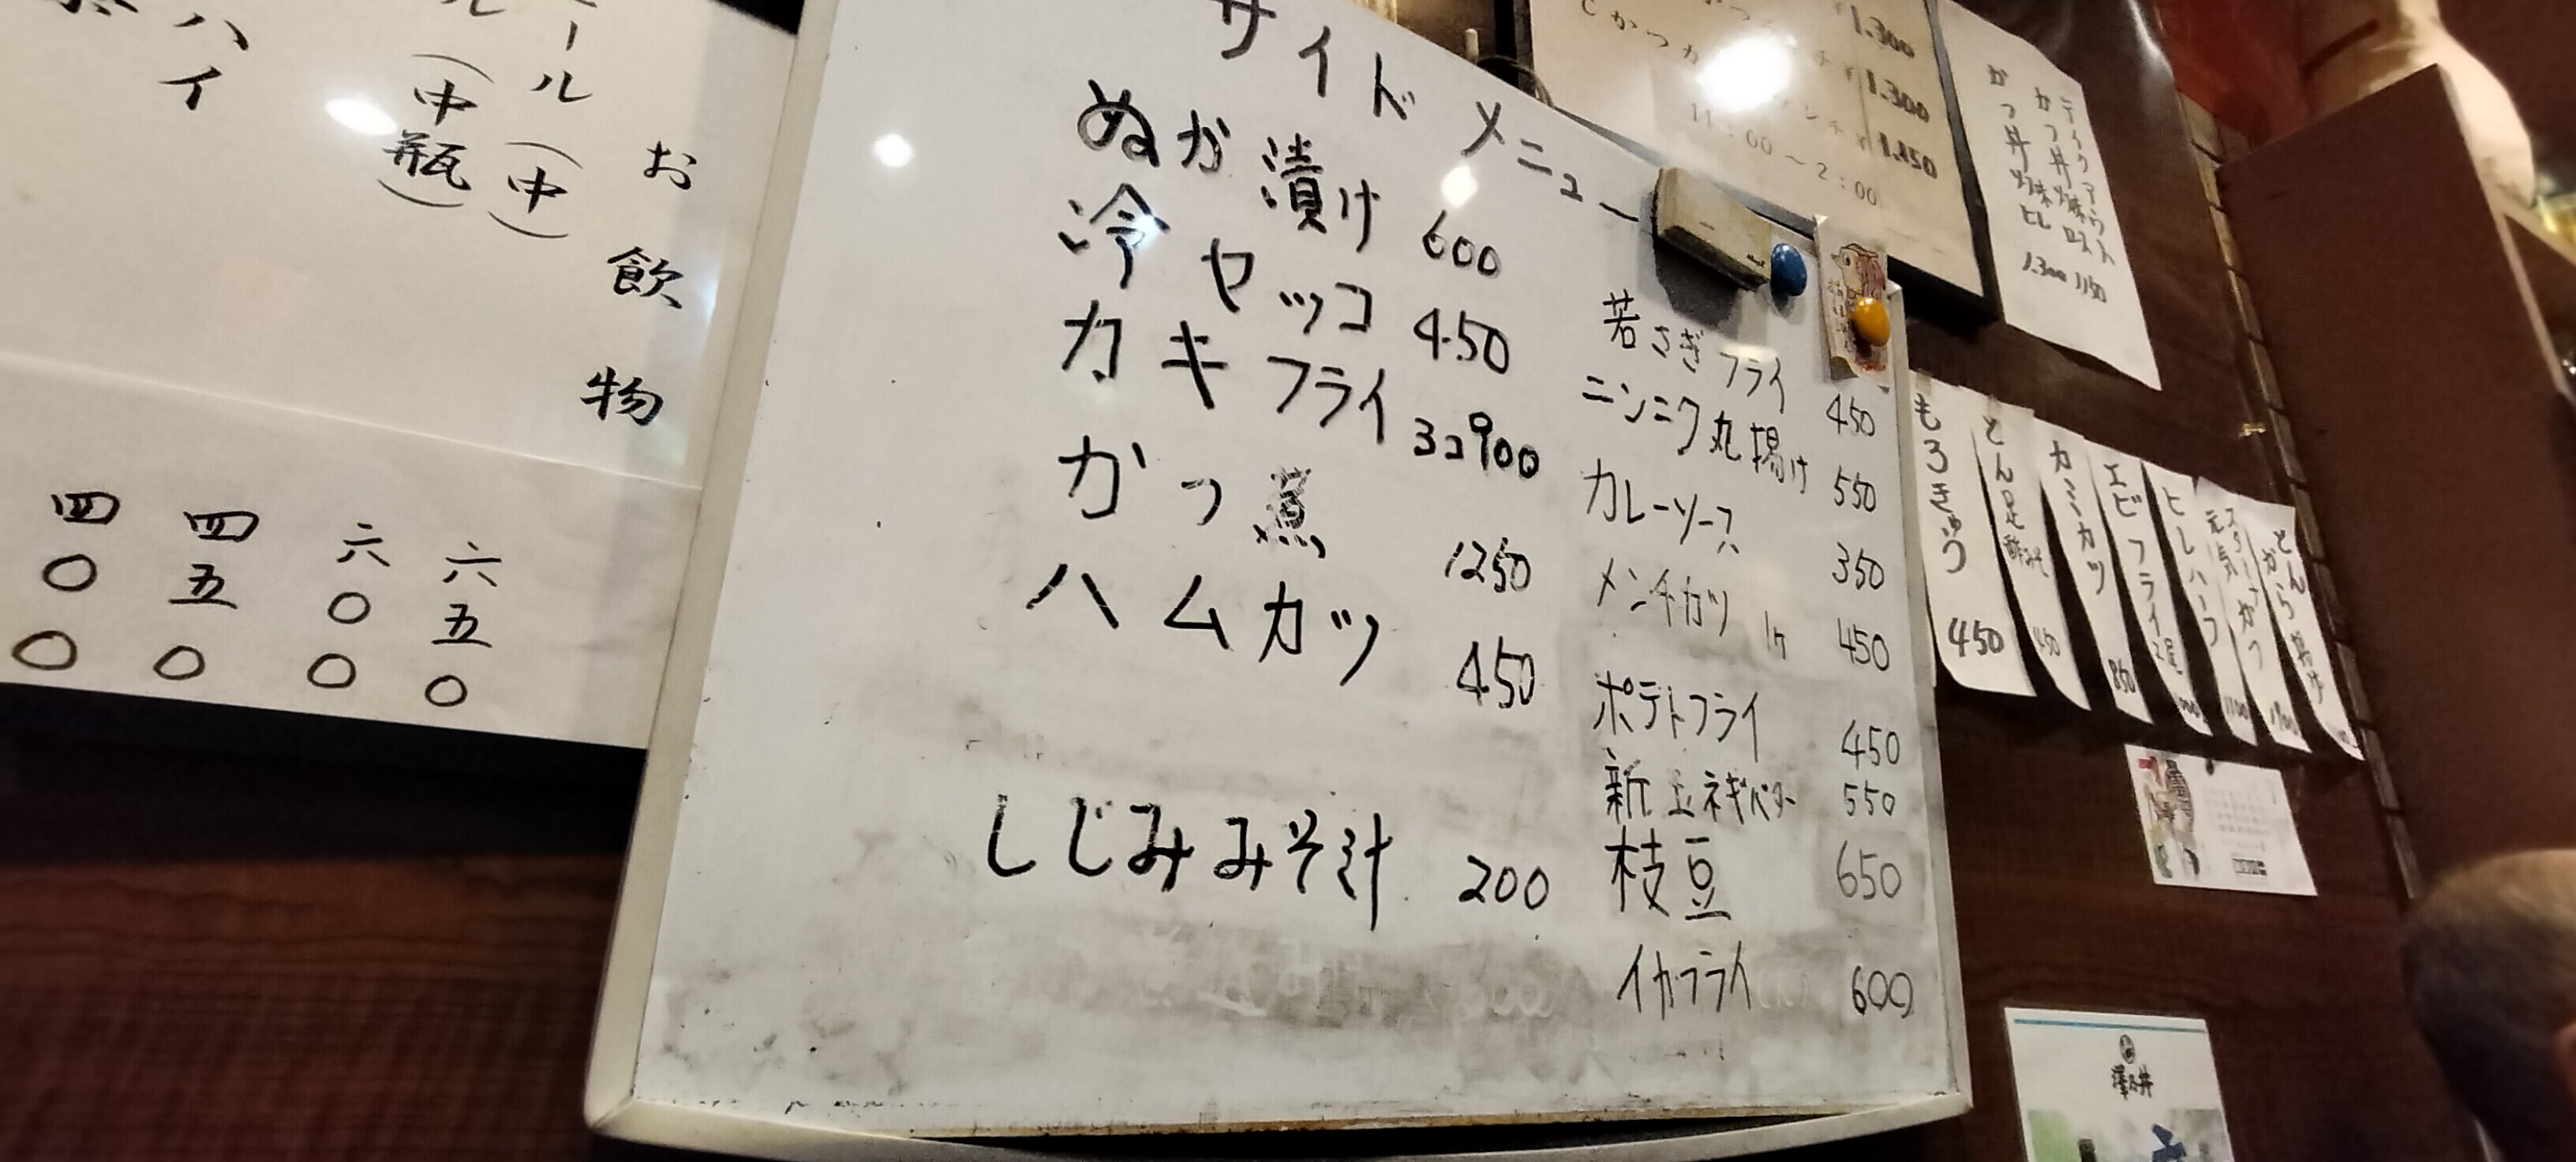 お飲物
ール(中) 六五〇
ル(中瓶) 六〇〇
ハイ 四五〇
四〇〇
サイドメニュー
ぬか漬け 600
冷ヤッコ 450
カキフライ 3コ900
かつ煮 1250
ハムカツ 450
しじみみそ汁 200
若さぎフライ 450
ニンニク丸揚け 550
カレーソース 350
メンチカツ 1ケ 450
ポテトフライ 450
新玉ネギバター 550
枝豆 650
イカフライ 600
1.300
1.300
1.150
11:00~2:00
テイクアウト
かつ丼 ロース 1150
かつ丼 ヒレ 1.300
もろきゅう 450
とん足
カミカツ 850
エビフライ2尾
ヒレハーフ 1100
元気
とんから揚げ
澤乃井